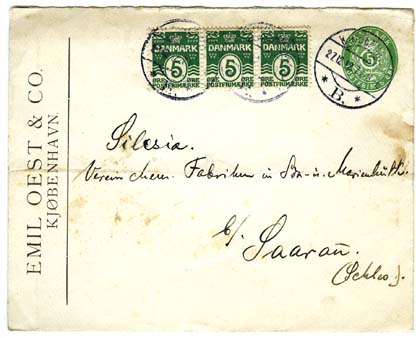 DANMARK DANMARK DANMARK
5 5 5
ØRE ØRE ØRE
POSTFRIMÆRKE POSTFRIMÆRKE POSTFRIMÆRKE
5
* B. *
EMIL OEST & CO.
KJØBENHAVN.
Silesia.
Verein chem. Fabriken in
Saarau.
(Schles).